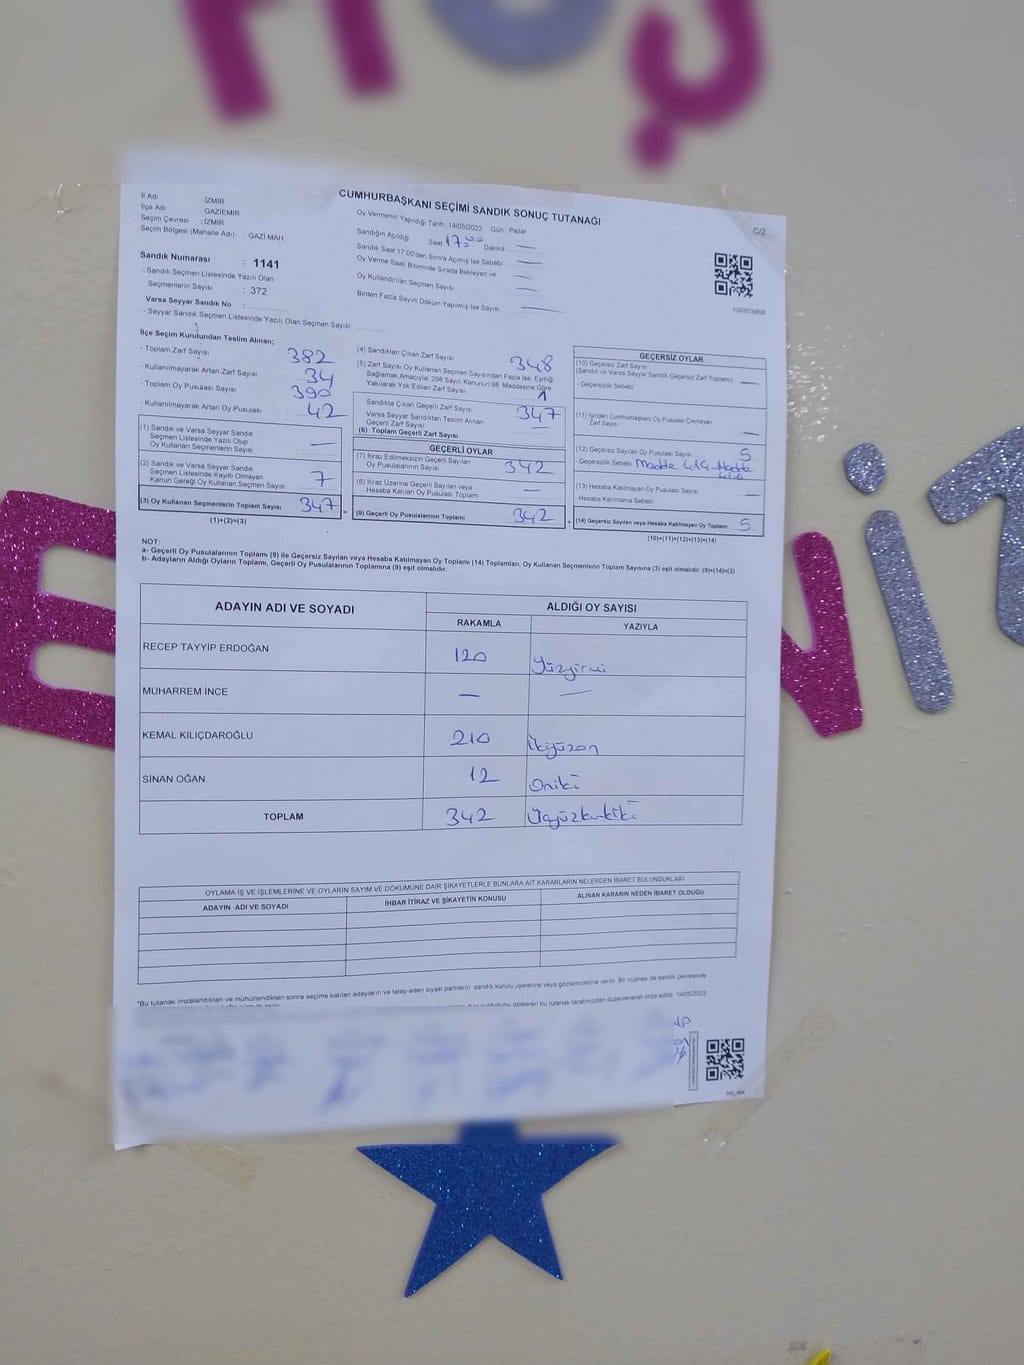 HOŞ
CUMHURBAŞKANI SEÇİMİ SANDIK SONUÇ TUTANAĞI
C/2
İl Adı : İZMİR
İlçe Adı : GAZİEMİR
Seçim Çevresi : İZMİR
Seçim Bölgesi (Mahalle Adı) : GAZİ MAH
Sandık Numarası : 1141
- Sandık Seçmen Listesinde Yazılı Olan
Seçmenlerin Sayısı : 372
Varsa Seyyar Sandık No :
- Seyyar Sandık Seçmen Listesinde Yazılı Olan Seçmen Sayısı:
Oy Vermenin Yapıldığı Tarih :14/05/2023 Gün Pazar
Sandığın Açıldığı Saat 17:00 Dakika —
Sandık Saat 17.00'den Sonra Açılmış İse Sebebi —
Oy Verme Saati Bitiminde Sırada Bekleyen ve —
Oy Kullandırılan Seçmen Sayısı —
Birden Fazla Sayım Döküm Yapılmış İse Sayısı —
1093576808
İlçe Seçim Kurulundan Teslim Alınan;
- Toplam Zarf Sayısı 382
- Kullanılmayarak Artan Zarf Sayısı 34
- Toplam Oy Pusulası Sayısı 390
- Kullanılmayarak Artan Oy Pusulası 42
(1) Sandık ve Varsa Seyyar Sandık
Seçmen Listesinde Yazılı Olup
Oy Kullanan Seçmenlerin Sayısı —
(2) Sandık ve Varsa Seyyar Sandık
Seçmen Listesinde Kayıtlı Olmayan
Kanun Gereği Oy Kullanan Seçmen Sayısı 7
(3) Oy Kullanan Seçmenlerin Toplam Sayısı 347
(1)+(2)=(3)
(4) Sandıktan Çıkan Zarf Sayısı 348
(5) Zarf Sayısı Oy Kullanan Seçmen Sayısından Fazla İse, Eşitliği
Sağlamak Amacıyla, 298 Sayılı Kanunun 98. Maddesine Göre
Yakılarak Yok Edilen Zarf Sayısı 1
Sandıkta Çıkan Geçerli Zarf Sayısı 347
Varsa Seyyar Sandıktan Teslim Alınan
Geçerli Zarf Sayısı —
(6) Toplam Geçerli Zarf Sayısı
GEÇERLİ OYLAR
(7) İtiraz Edilmeksizin Geçerli Sayılan
Oy Pusulalarının Sayısı 342
(8) İtiraz Üzerine Geçerli Sayılan veya
Hesaba Katılan Oy Pusulası Toplamı —
(9) Geçerli Oy Pusulalarının Toplamı 342
GEÇERSİZ OYLAR
(10) Geçersiz Zarf Sayısı
(Sandık ve Varsa Seyyar Sandık Geçersiz Zarf Toplamı) —
- Geçersizlik Sebebi
(11) İçinden Cumhurbaşkanı Oy Pusulası Çıkmayan
Zarf Sayısı —
(12) Geçersiz Sayılan Oy Pusulası Sayısı 5
- Geçersizlik Sebebi Madde
(13) Hesaba Katılmayan Oy Pusulası Sayısı —
- Hesaba Katılmama Sebebi
(14) Geçersiz Sayılan veya Hesaba Katılmayan Oy Toplamı 5
(10)+(11)+(12)+(13)=(14)
NOT:
a- Geçerli Oy Pusulalarının Toplamı (9) ile Geçersiz Sayılan veya Hesaba Katılmayan Oy Toplamı (14) Toplamları, Oy Kullanan Seçmenlerin Toplam Sayısına (3) eşit olmalıdır. (9)+(14)=(3)
b- Adayların Aldığı Oyların Toplamı, Geçerli Oy Pusulalarının Toplamına (9) eşit olmalıdır.
ADAYIN ADI VE SOYADI ALDIĞI OY SAYISI
RAKAMLA YAZIYLA
RECEP TAYYİP ERDOĞAN 120 Yüzyirmi
MUHARREM İNCE — —
KEMAL KILIÇDAROĞLU 210 İkiyüzon
SİNAN OĞAN 12 Oniki
TOPLAM 342 Üçyüzkırkiki
OYLAMA İŞ VE İŞLEMLERİNE VE OYLARIN SAYIM VE DÖKÜMÜNE DAİR ŞİKAYETLERLE BUNLARA AİT KARARLARIN NELERDEN İBARET BULUNDUKLARI
ADAYIN ADI VE SOYADI İHBAR İTİRAZ VE ŞİKAYETİN KONUSU ALINAN KARARIN NEDEN İBARET OLDUĞU
*Bu tutanak imzalandıktan ve mühürlendikten sonra seçime katılan adayların ve talep eden siyasi partilerin sandık kurulu üyelerine veya gözlemcilerine verilir. Bir nüshası da sandık çevresinde
bu tutanak tarafımızdan düzenlenerek imza edildi. 14/05/2023